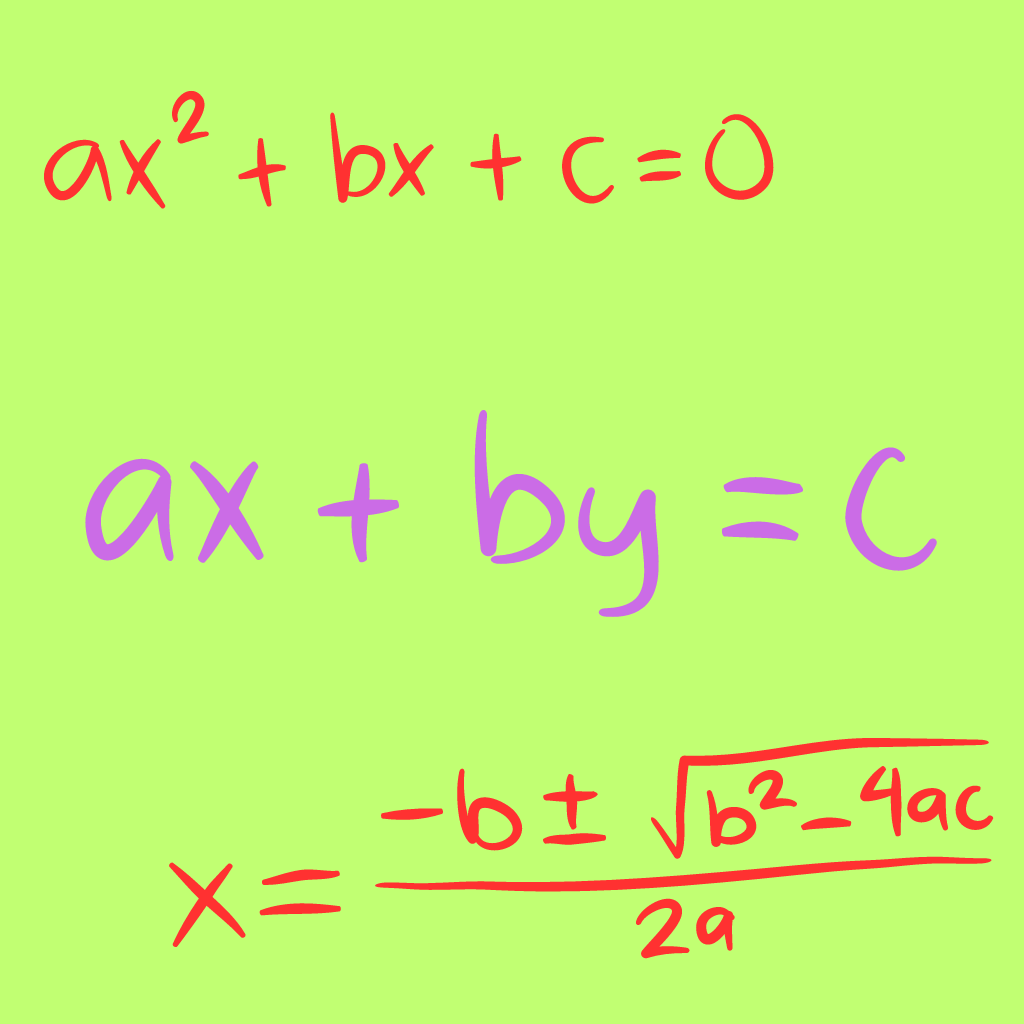 ax² + bx + c = 0
ax + by = c
x = (-b ± √(b² - 4ac)) / 2a